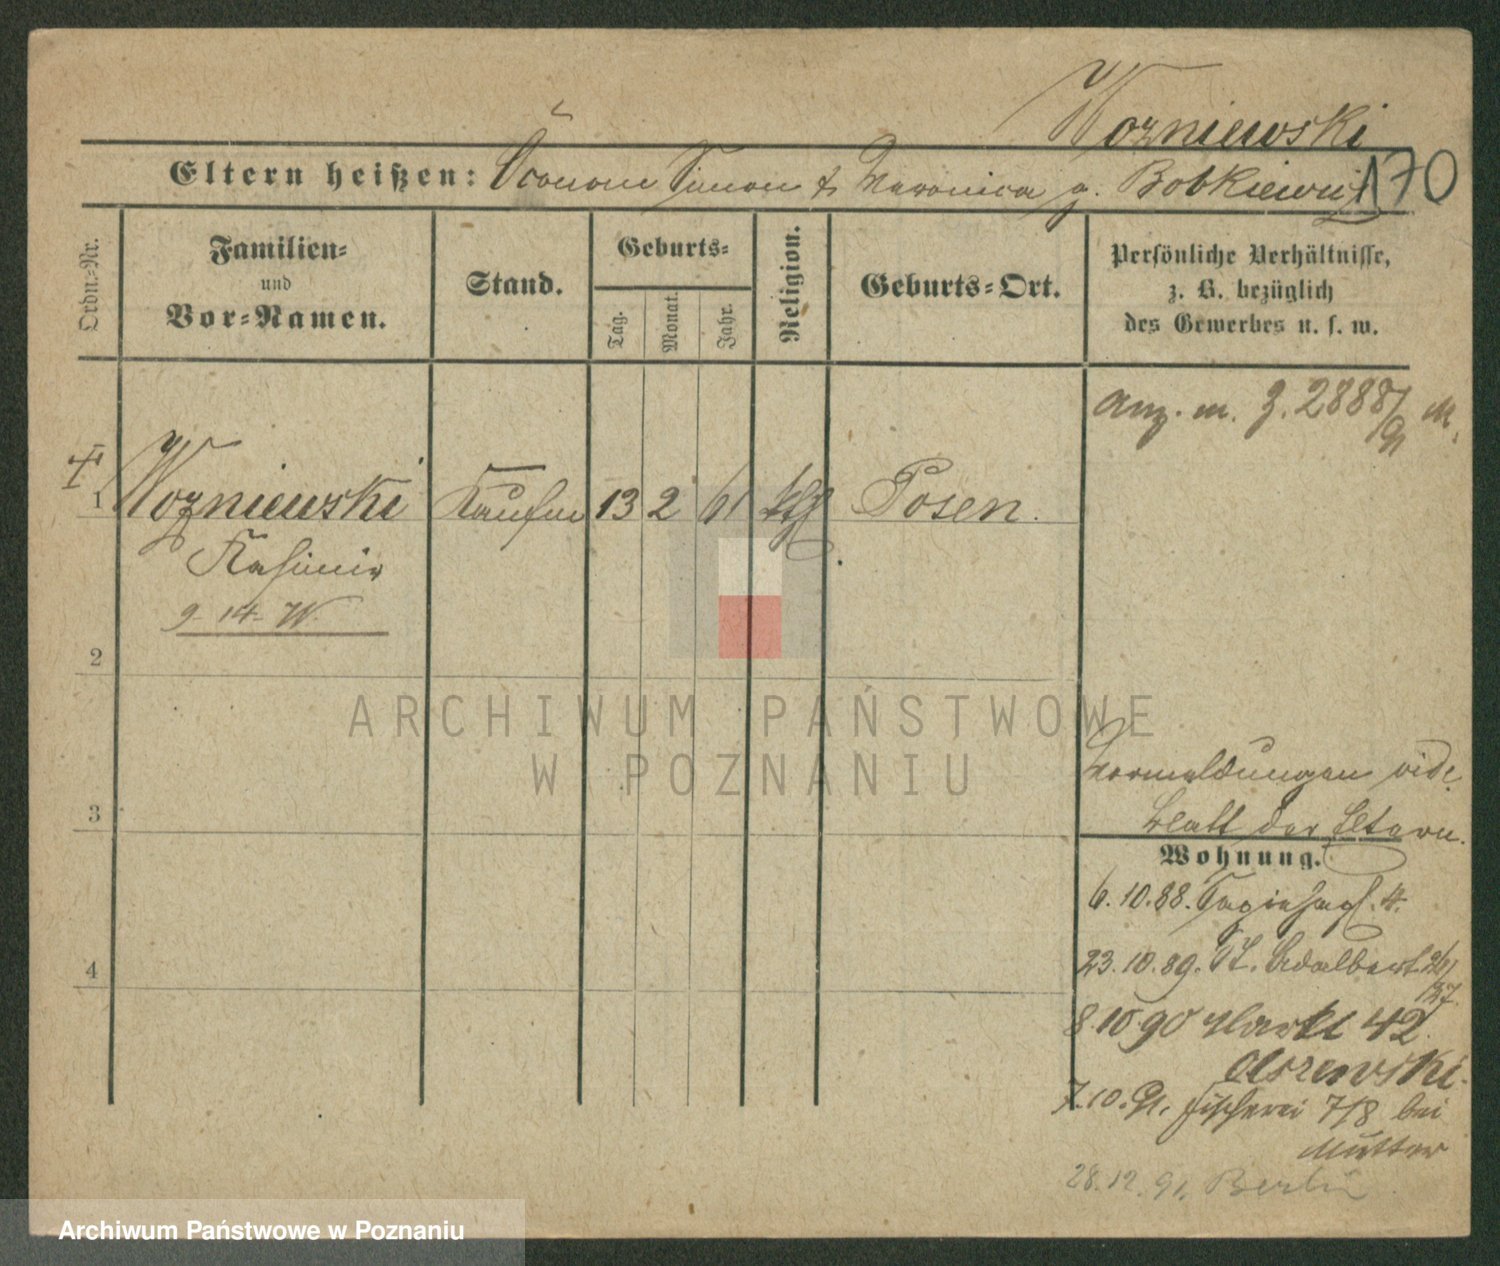 Wozniewski
170
Eltern heißen: Öconom Simon & Veronica g. Bobkiewicz
Ordn.-Nr.
Familien-
und
Vor-Namen.
Stand.
Geburts-
Tag.
Monat.
Jahr.
Religion.
Geburts-Ort.
Persönliche Verhältnisse,
z. B. bezüglich
des Gewerbes u. s. w.
Anz. m. Z. 2888/91 M.
1 Wozniewski Kaufm 13 2 61 kth Posen.
Kasimir
9. 14. W.
2
3
4
Vormeldungen vide
Blatt der Eltern.
Wohnung.
6. 10. 88. Sapiehapl. 4.
23. 10. 89. St. Adalbert 26/27.
8. 10 90 Markt 42
Olszewski.
7. 10. 91. Fischerei 7/8 bei
Mutter
28. 12. 91. Berlin
ARCHIWUM PAŃSTWOWE
W POZNANIU
Archiwum Państwowe w Poznaniu